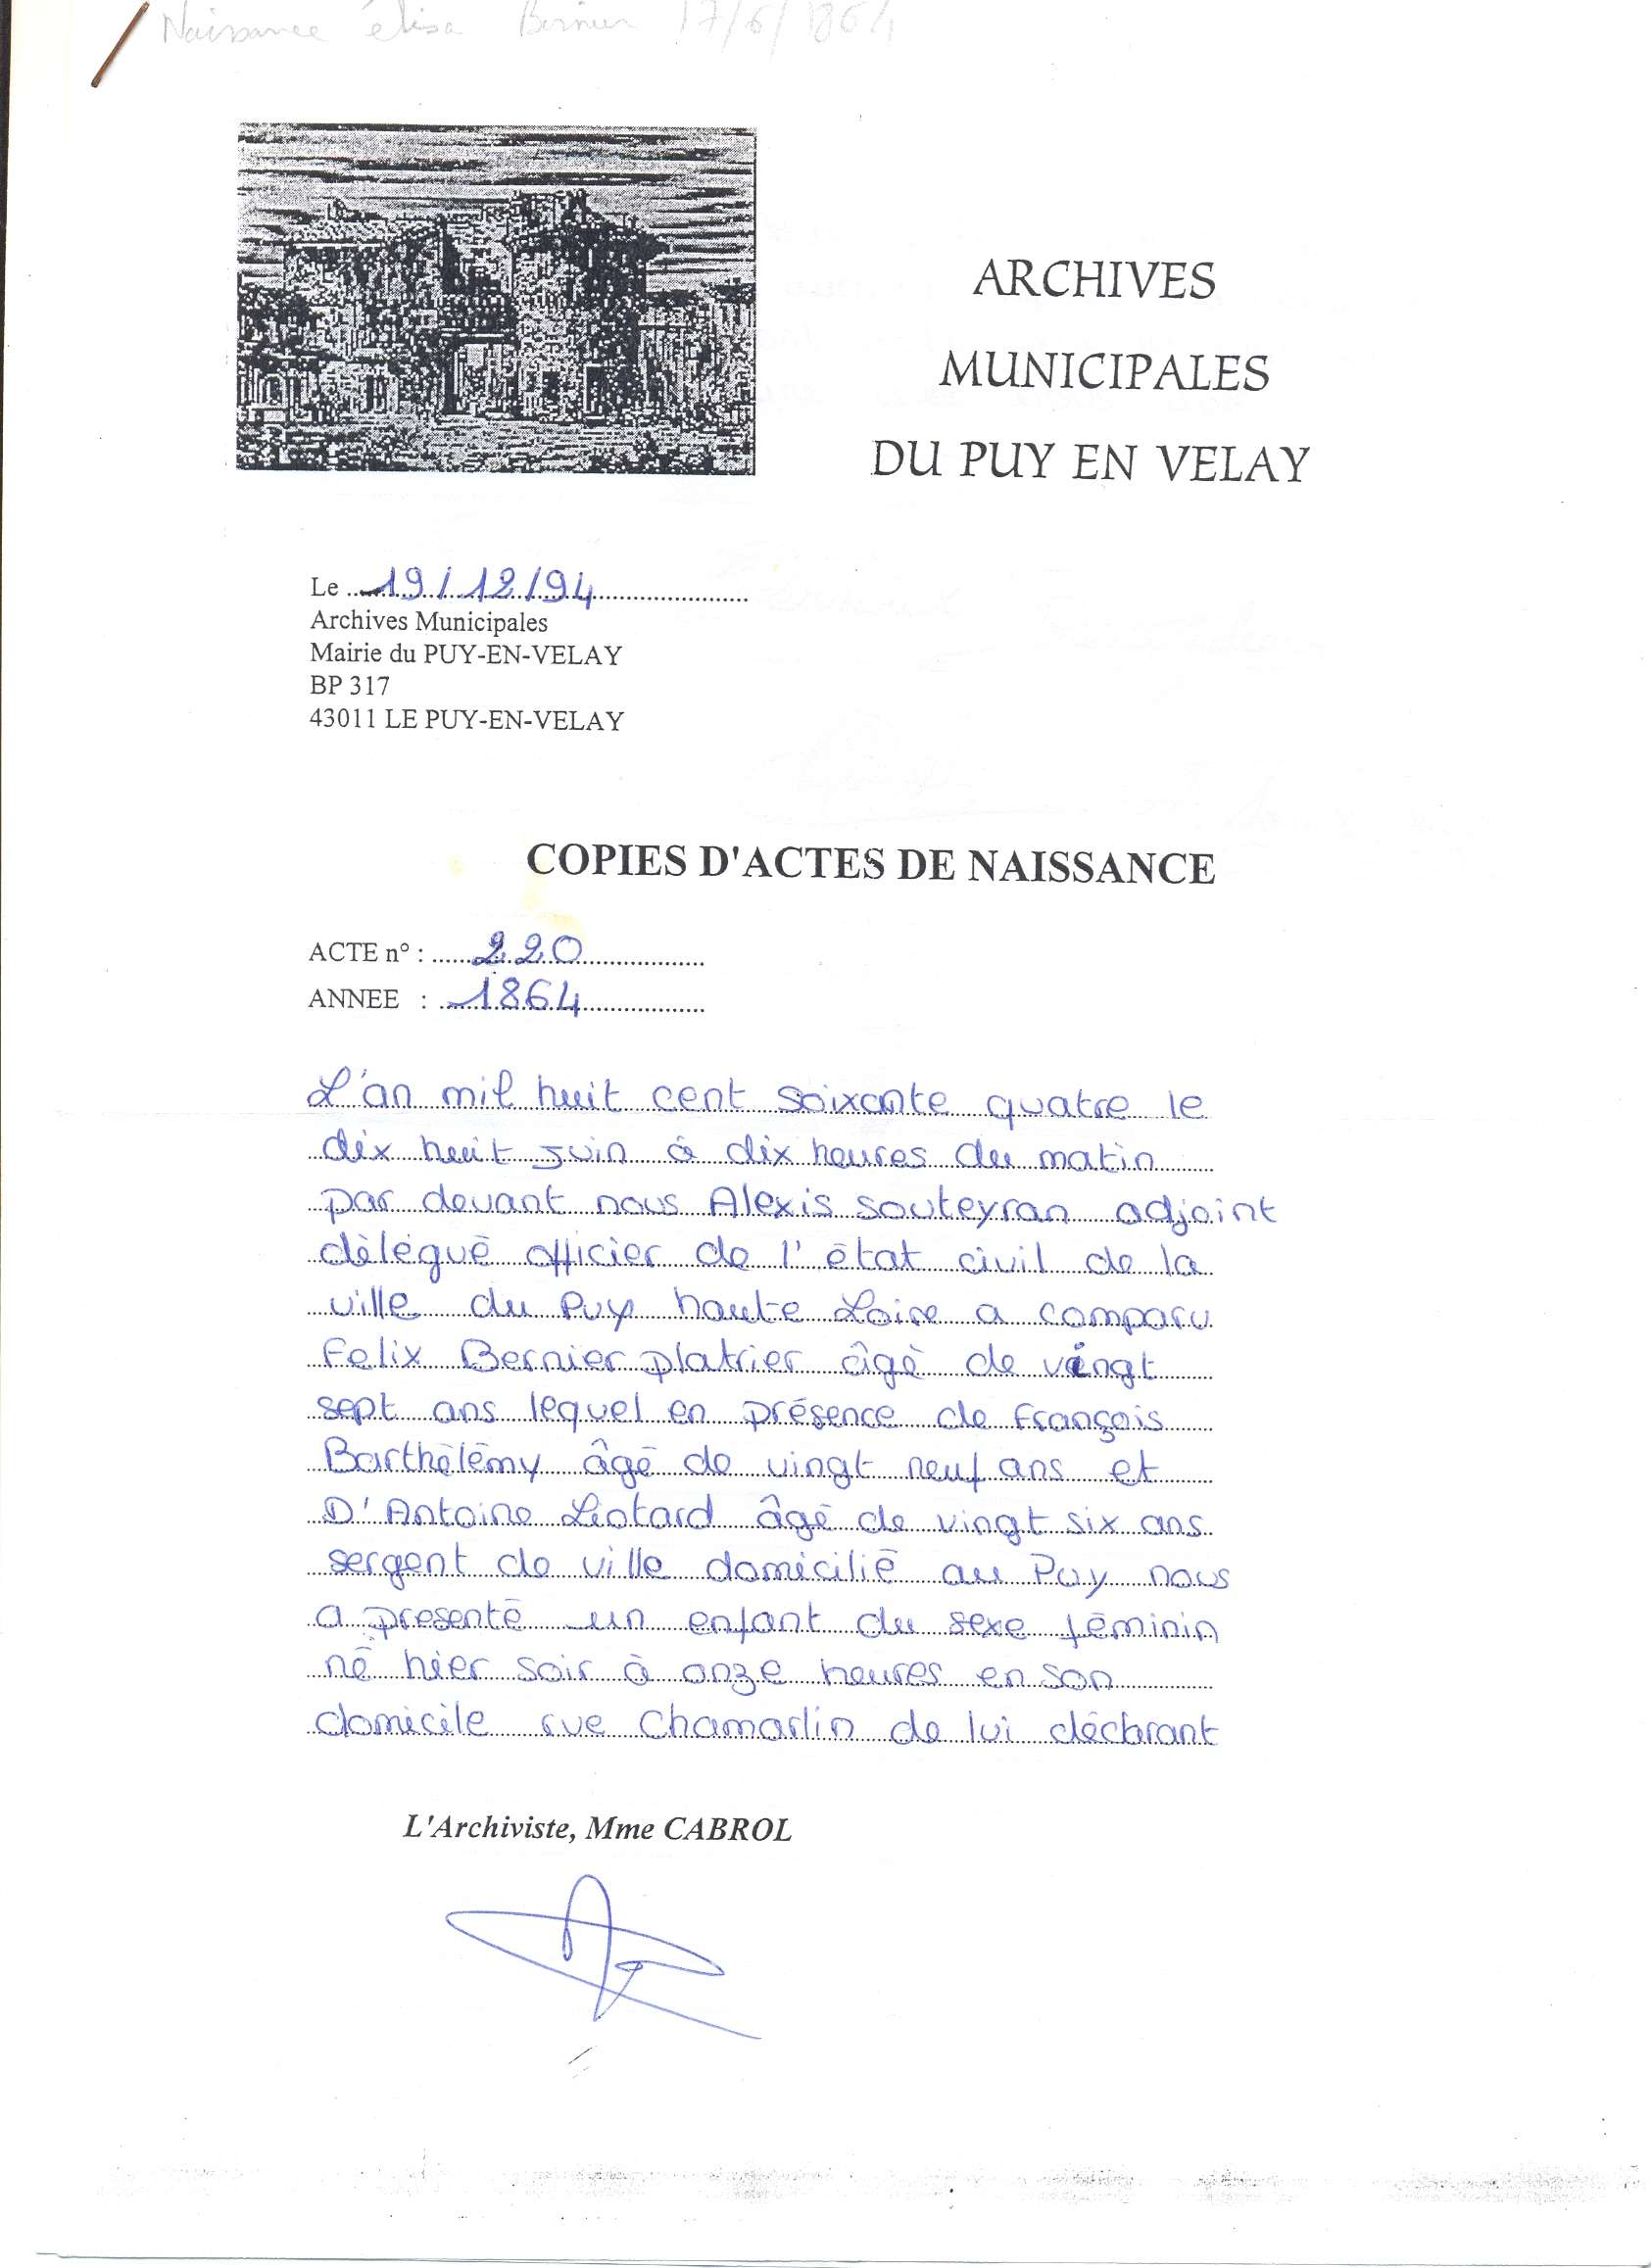 Naissance élisa Bernier 17/6/1864
ARCHIVES
MUNICIPALES
DU PUY EN VELAY
Le 19/12/94
Archives Municipales
Mairie du PUY-EN-VELAY
BP 317
43011 LE PUY-EN-VELAY
COPIES D'ACTES DE NAISSANCE
ACTE n° : 220
ANNEE : 1864
L'an mil huit cent soixante quatre le
dix huit juin à dix heures du matin
par devant nous Alexis Souteyran adjoint
délégué officier de l'état civil de la
ville du Puy haute Loire a comparu
Felix Bernier platrier âgé de vingt
sept ans lequel en présence de François
Barthélémy âgé de vingt neuf ans et
D'Antoine Liotard âgé de vingt six ans
sergent de ville domicilié au Puy nous
a presenté un enfant du sexe féminin
né hier soir à onze heures en son
domicile rue Chamarlin de lui déclarant
L'Archiviste, Mme CABROL